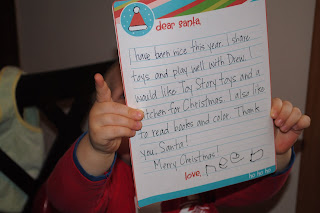 dear santa,
I have been nice this year. I share
toys and play well with Drew. I
would like Toy Story toys and a
kitchen for Christmas. I also like
to read books and color. Thank
you, Santa!
Merry Christmas!
love,
ho ho ho